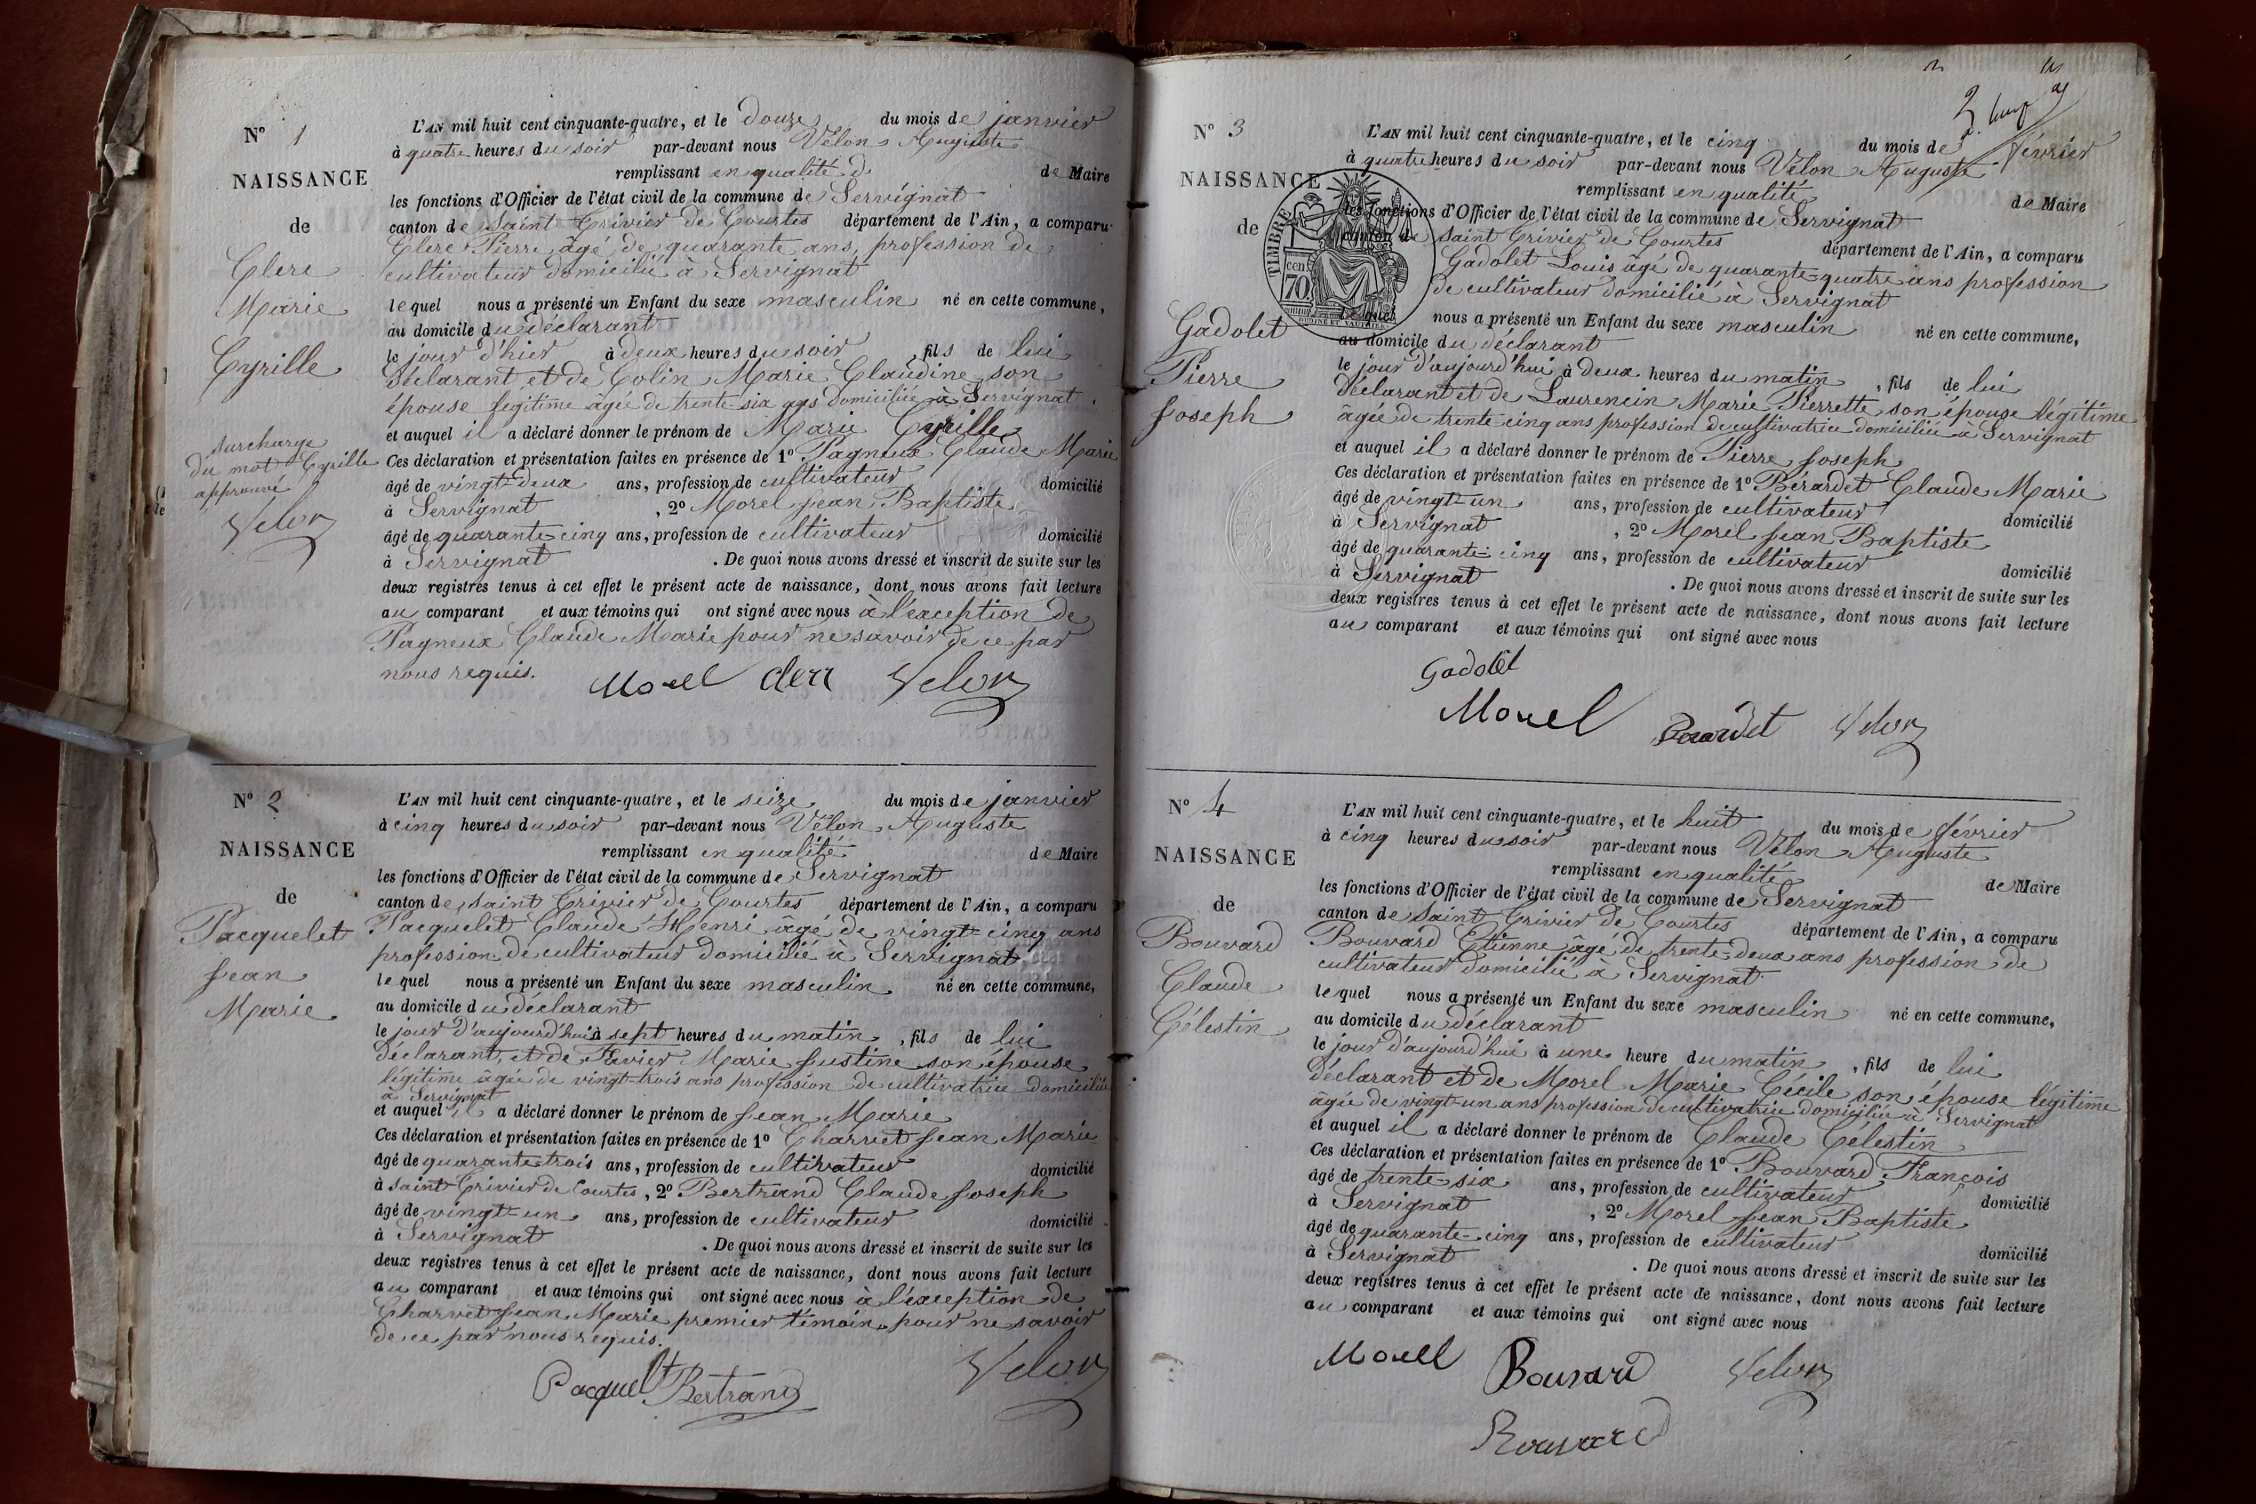 N° 1
NAISSANCE
de
Clerc
Marie
Cyrille
surcharge
du mot Cyrille
approuvé
Velon
L'AN mil huit cent cinquante-quatre, et le douze du mois de janvier
à quatre heures du soir par-devant nous Vélon Auguste
remplissant en qualité d de Maire
les fonctions d'Officier de l'état civil de la commune de Servignat
canton de Saint Trivier de Courtes département de l'Ain, a comparu
Clerc Pierre âgé de quarante ans, profession de
cultivateur domicilié à Servignat
lequel nous a présenté un Enfant du sexe masculin né en cette commune,
au domicile du déclarant
le jour d'hier à deux heures du soir, fils de lui
déclarant et de Colin Marie Claudine son
épouse légitime âgée de trente-six ans domiciliée à Servignat
et auquel il a déclaré donner le prénom de Marie Cyrille
Ces déclaration et présentation faites en présence de 1° Pagneux Claude Marie
âgé de vingt-deux ans, profession de cultivateur domicilié
à Servignat, 2° Morel Jean Baptiste
âgé de quarante-cinq ans, profession de cultivateur domicilié
à Servignat. De quoi nous avons dressé et inscrit de suite sur les
deux registres tenus à cet effet le présent acte de naissance, dont nous avons fait lecture
au comparant et aux témoins qui ont signé avec nous à l'exception de
Pagneux Claude Marie pour ne savoir de ce par
nous requis.
Morel Clerc Velon
N° 2
NAISSANCE
de
Pacquelet
Jean
Marie
L'AN mil huit cent cinquante-quatre, et le seize du mois de janvier
à cinq heures du soir par-devant nous Vélon Auguste
remplissant en qualité de Maire
les fonctions d'Officier de l'état civil de la commune de Servignat
canton de Saint Trivier de Courtes département de l'Ain, a comparu
Pacquelet Claude Henri âgé de vingt-cinq ans
profession de cultivateur domicilié à Servignat
lequel nous a présenté un Enfant du sexe masculin né en cette commune,
au domicile du déclarant
le jour d'aujourd'hui à sept heures du matin, fils de lui
déclarant, et de Favier Marie Justine son épouse
légitime âgée de vingt-trois ans profession de cultivatrice domiciliée
à Servignat
et auquel il a déclaré donner le prénom de Jean Marie
Ces déclaration et présentation faites en présence de 1° Charvet Jean Marie
âgé de quarante-trois ans, profession de cultivateur domicilié
à Saint Trivier de Courtes, 2° Bertrand Claude Joseph
âgé de vingt-un ans, profession de cultivateur domicilié
à Servignat. De quoi nous avons dressé et inscrit de suite sur les
deux registres tenus à cet effet le présent acte de naissance, dont nous avons fait lecture
au comparant et aux témoins qui ont signé avec nous à l'exception de
Charvet Jean Marie premier témoin pour ne savoir
de ce par nous requis.
Pacquelet Bertrand Velon
2
N° 3
NAISSANCE
de
Gadolet
Pierre
Joseph
TIMBRE
70 cen
L'AN mil huit cent cinquante-quatre, et le cinq du mois de février
à quatre heures du soir par-devant nous Vélon Auguste
remplissant en qualité de Maire
les fonctions d'Officier de l'état civil de la commune de Servignat
canton de Saint Trivier de Courtes département de l'Ain, a comparu
Gadolet Louis âgé de quarante-quatre ans profession
de cultivateur domicilié à Servignat
lequel nous a présenté un Enfant du sexe masculin né en cette commune,
au domicile du déclarant
le jour d'aujourd'hui à deux heures du matin, fils de lui
déclarant et de Laurencin Marie Pierrette son épouse légitime
âgée de trente-cinq ans profession de cultivatrice domiciliée à Servignat
et auquel il a déclaré donner le prénom de Pierre Joseph
Ces déclaration et présentation faites en présence de 1° Bérardet Claude Marie
âgé de vingt-un ans, profession de cultivateur domicilié
à Servignat, 2° Morel Jean Baptiste
âgé de quarante-cinq ans, profession de cultivateur domicilié
à Servignat. De quoi nous avons dressé et inscrit de suite sur les
deux registres tenus à cet effet le présent acte de naissance, dont nous avons fait lecture
au comparant et aux témoins qui ont signé avec nous
Gadolet
Morel Berardet Velon
N° 4
NAISSANCE
de
Bouvard
Claude
Célestin
L'AN mil huit cent cinquante-quatre, et le huit du mois de février
à cinq heures du soir par-devant nous Vélon Auguste
remplissant en qualité de Maire
les fonctions d'Officier de l'état civil de la commune de Servignat
canton de Saint Trivier de Courtes département de l'Ain, a comparu
Bouvard Etienne âgé de trente-deux ans profession de
cultivateur domicilié à Servignat
lequel nous a présenté un Enfant du sexe masculin né en cette commune,
au domicile du déclarant
le jour d'aujourd'hui à une heure du matin, fils de lui
déclarant et de Morel Marie Cécile son épouse légitime
âgée de vingt-un ans profession de cultivatrice domiciliée à Servignat
et auquel il a déclaré donner le prénom de Claude Célestin
Ces déclaration et présentation faites en présence de 1° Bouvard François
âgé de trente-six ans, profession de cultivateur domicilié
à Servignat, 2° Morel Jean Baptiste
âgé de quarante-cinq ans, profession de cultivateur domicilié
à Servignat. De quoi nous avons dressé et inscrit de suite sur les
deux registres tenus à cet effet le présent acte de naissance, dont nous avons fait lecture
au comparant et aux témoins qui ont signé avec nous
Morel Bouvard Velon
Bouvard